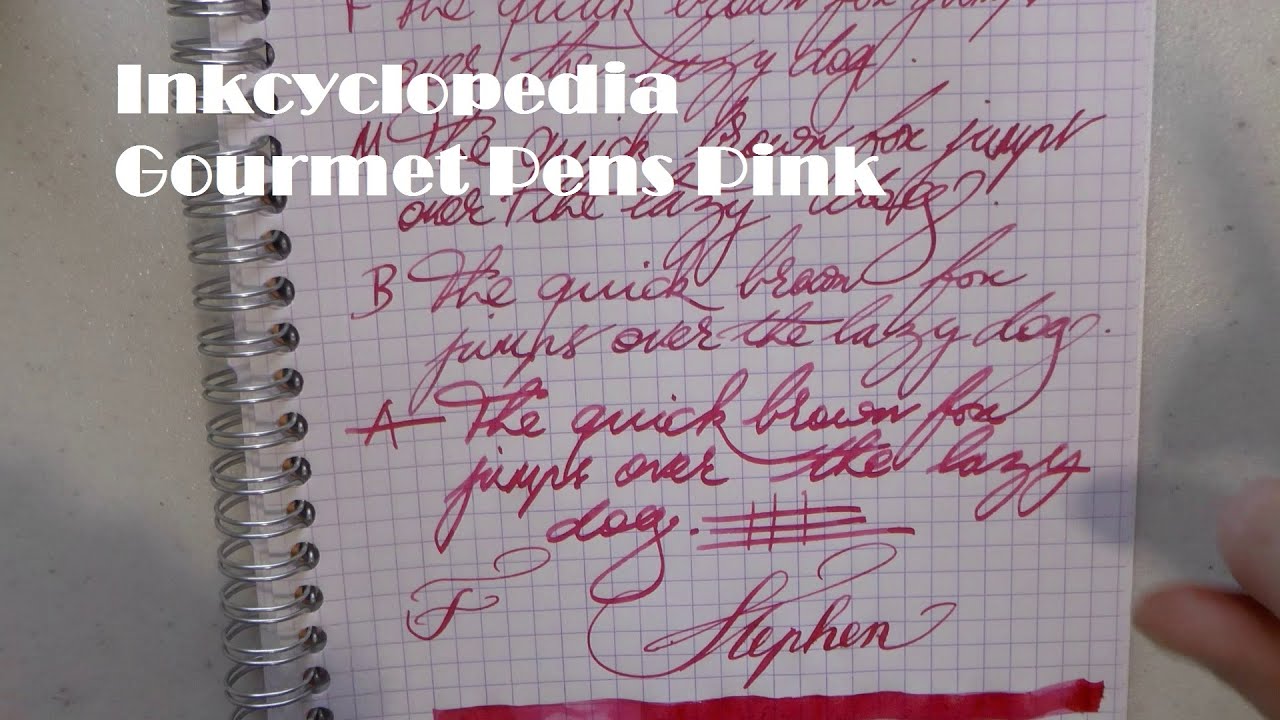 F The quick brown fox jumps
over the lazy dog
Inkcyclopedia
M The quick brown fox jumps
Gourmet Pens Pink
over the lazy
B The quick brown fox
jumps over the lazy dog.
A The quick brown fox
jumps over the lazy
dog.
F
Stephen